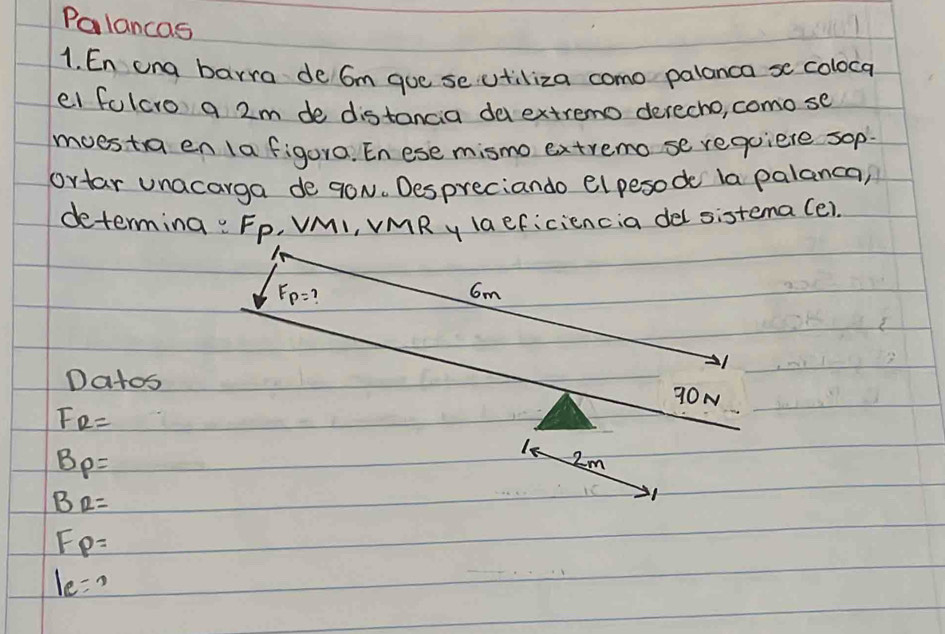 Palancas
1. En una barra de 6m que se utiliza como palanca se coloca
el fulcro a 2m de distancia del extremo derecho, como se
muestra en la figura. En ese mismo extremo se requiere sop-
ortar unacarga de 90N. Despreciando el peso de la palanca,
determina: Fp, VMI, VMR y la eficiencia del sistema (e).
Fp=?
6m
90N
2m
Datos
FR=
Bp=
BR=
Fp=
le=?